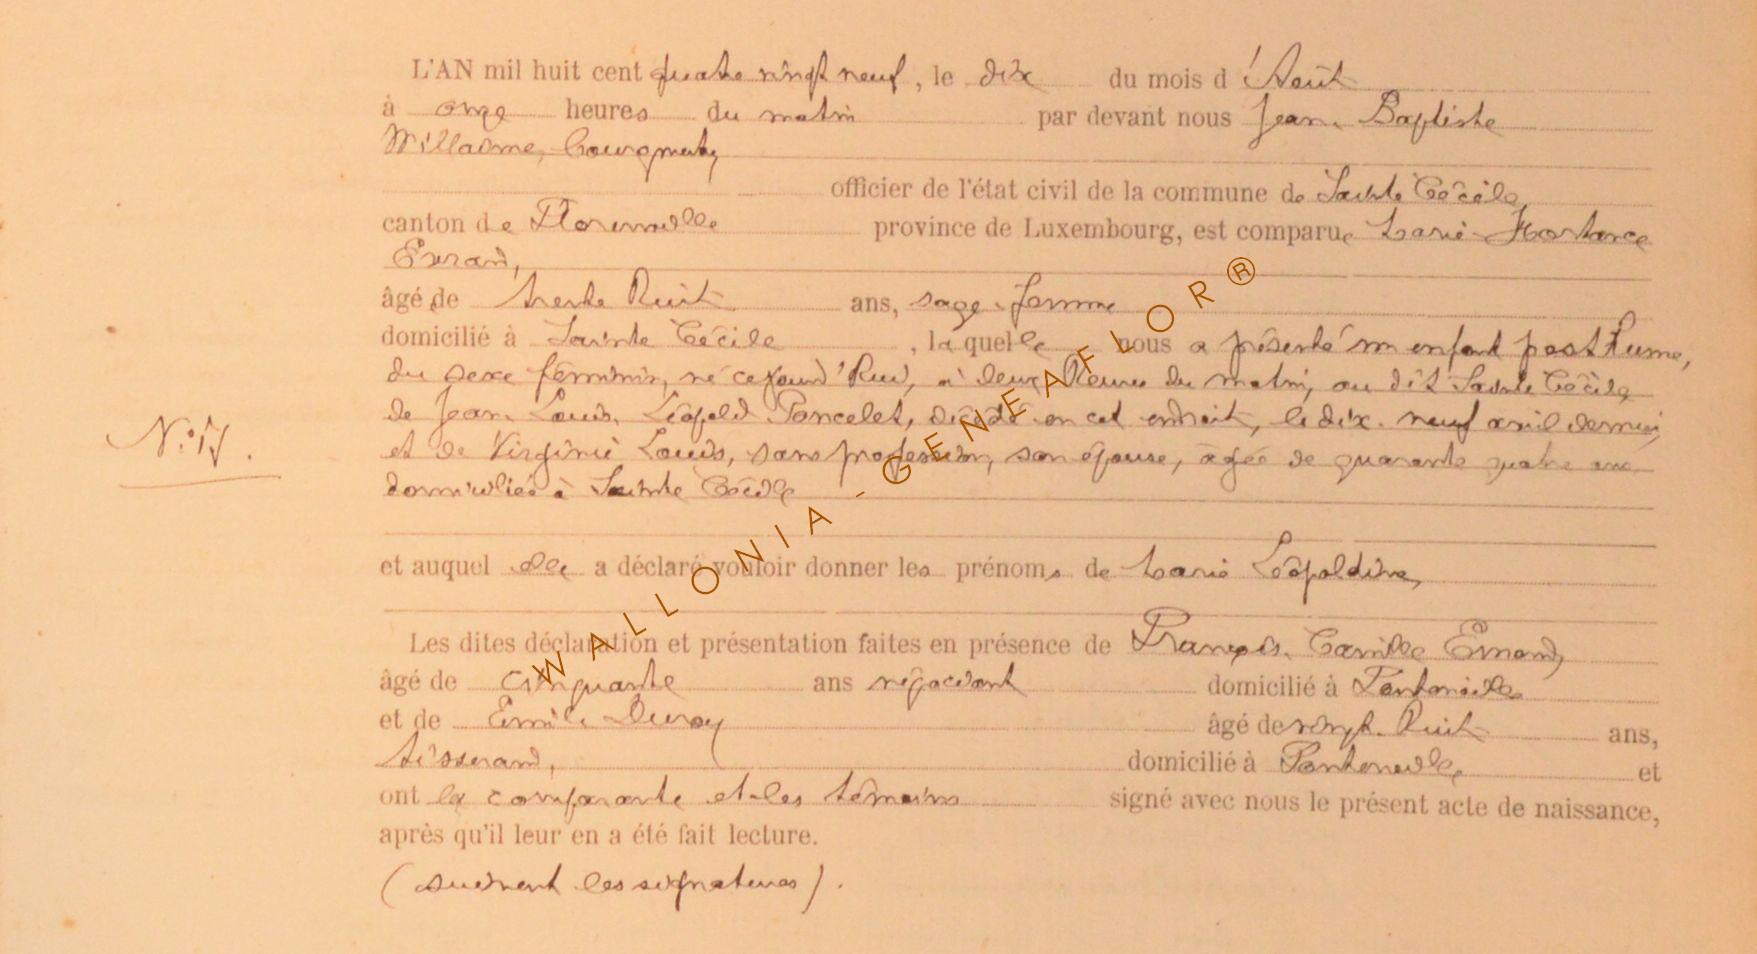 L'AN mil huit cent quatre vingt neuf, le dix du mois d'Août
à onze heures du matin par devant nous Jean Baptiste
Willaime, bourgmestre
officier de l'état civil de la commune de Sainte Cécile,
canton de Florenville province de Luxembourg, est comparue Marie Hortance
Evrard,
âgée de trente huit ans, sage-femme
domicilié à Sainte Cécile, laquelle nous a présenté un enfant posthume,
du sexe féminin, né cejourd'hui, à deux heures du matin, au dit Sainte Cécile,
de Jean Louis Léopold Poncelet, décédé en cet endroit, le dix-neuf avril dernier,
et de Virginie Louis, sans profession, son épouse, âgée de quarante quatre ans
domiciliée à Sainte Cécile
N.° 17.
et auquel elle a déclaré vouloir donner les prénoms de Marie Léopoldine,
Les dites déclaration et présentation faites en présence de François Camille
âgé de cinquante ans négociant domicilié à Fontenoille
et de Emile Duroy âgé de vingt-huit ans,
tisserand, domicilié à Fontenoille, et
ont la comparante et les témoins signé avec nous le présent acte de naissance,
après qu'il leur en a été fait lecture.
(suivent les signatures).
WALLONIA - GENEAFLOR®